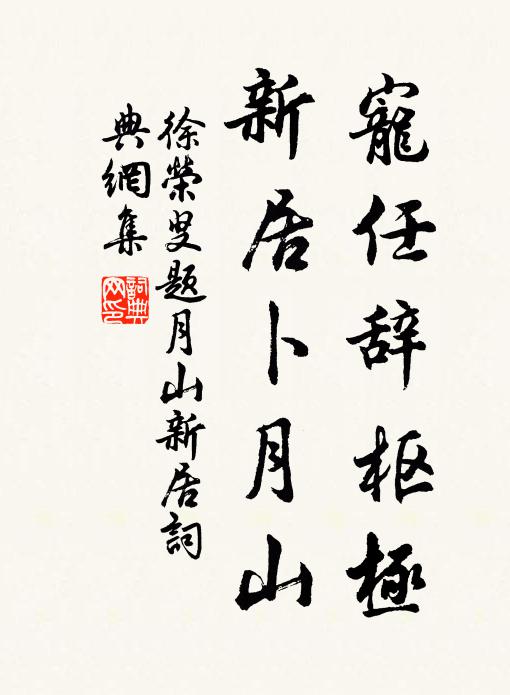 寵任辞枢極
新居卜月山
徐榮叟題月山新居詞
典網集
詞典网印